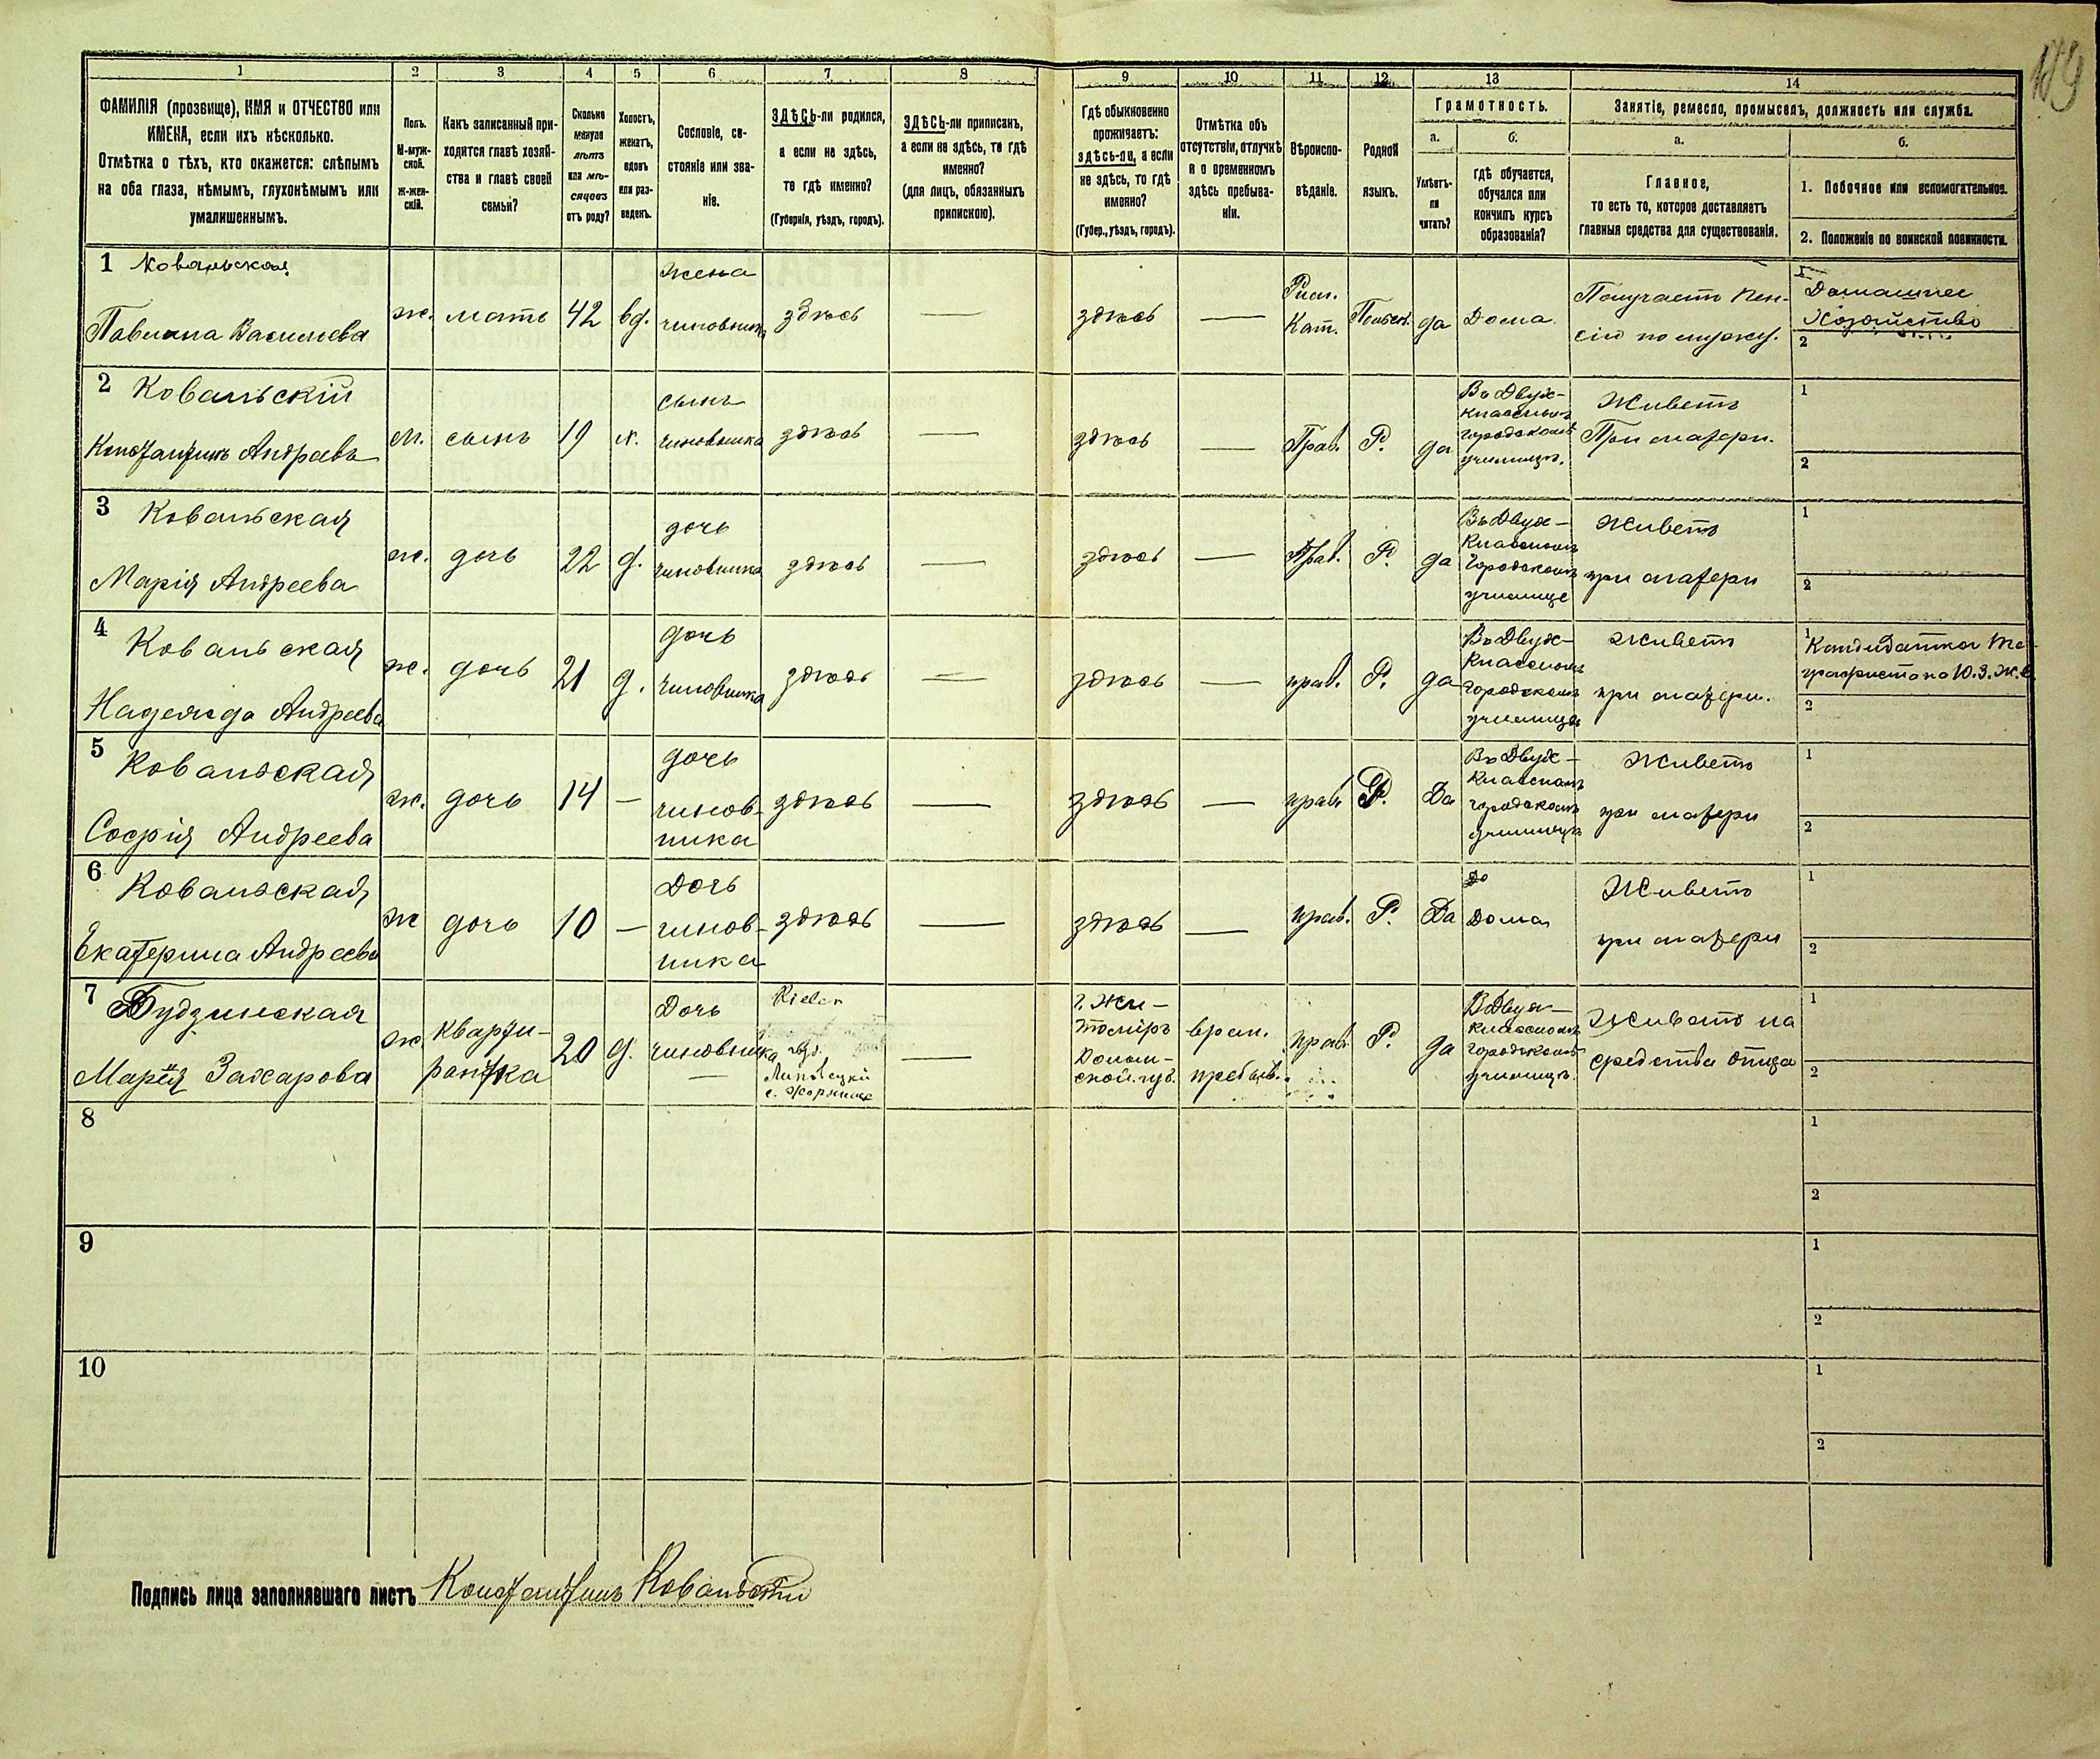 119
1 2 3 4 5 6 7 8 9 10 11 12 13 14
ФАМИЛІЯ (прозвище), ИМЯ и ОТЧЕСТВО или
ИМЕНА, если ихъ нѣсколько.
Отмѣтка о тѣхъ, кто окажется: слѣпымъ
на оба глаза, нѣмымъ, глухонѣмымъ или
умалишеннымъ.
Полъ.
М-муж-
ской.
Ж-жен-
скій.
Какъ записанный при-
ходится главѣ хозяй-
ства и главѣ своей
семьи?
Сколько
минуло
лѣтъ
или мѣ-
сяцевъ
отъ роду?
Холостъ,
женатъ,
вдовъ
или раз-
веденъ.
Сословіе, со-
стояніе или зва-
ніе.
ЗДѢСЬ-ли родился,
а если не здѣсь,
то гдѣ именно?
(Губернія, уѣздъ, городъ).
ЗДѢСЬ-ли приписанъ,
а если не здѣсь, то гдѣ
именно?
(для лицъ, обязанныхъ
припискою).
Гдѣ обыкновенно
проживаетъ:
здѣсь-ли, а если
не здѣсь, то гдѣ
именно?
(Губер., уѣздъ, городъ).
Отмѣтка объ
отсутствіи, отлучкѣ
и о временномъ
здѣсь пребыва-
ніи.
Вѣроиспо-
вѣданіе.
Родной
языкъ.
Грамотность.
а.
Умѣетъ-
ли
читать?
б.
гдѣ обучается,
обучался или
кончилъ курсъ
образованія?
Занятіе, ремесло, промыселъ, должность или служба.
а.
Главное,
то есть то, которое доставляетъ
главныя средства для существованія.
б.
1. Побочное или вспомогательное.
2. Положеніе по воинской повинности.
1 Ковальская
Павлина Васильева
ж.
мать
42
вд.
жена
чиновника
здѣсь
—
здѣсь
—
Рим.
Кат.
Польск.
да
Дома
Получаетъ пен-
сію по мужу.
1
Домашнее
Хозяйство
2
2 Ковальскій
Константинъ Андреевъ
м.
сынъ
19
х.
сынъ
чиновника
здѣсь
—
здѣсь
—
Прав.
Р.
да
Въ Двух-
классномъ
городскомъ
училищѣ.
Живетъ
При матери.
1
2
3 Ковальская
Марія Андреева
ж.
дочь
22
д.
дочь
чиновника
здѣсь
—
здѣсь
—
Прав.
Р.
да
Въ Двух-
классномъ
городскомъ
училище
Живетъ
при матери
1
2
4 Ковальская
Надежда Андреева
ж.
дочь
21
д.
дочь
чиновника
здѣсь
—
здѣсь
—
прав.
Р.
да
Въ Двух-
классномъ
городскомъ
училищѣ
живетъ
при матери.
1
Кандидатка Те-
графиста на Ю.З.Ж.д.
2
5 Ковальская
Софія Андреева
ж.
дочь
14
—
дочь
чинов-
ника
здѣсь
—
здѣсь
—
прав.
Р.
Да
Въ Двух-
классномъ
городскомъ
училищѣ
Живетъ
при матери
1
2
6 Ковальская
Екатерина Андреева
ж
дочь
10
—
Дочь
чинов-
ника
здѣсь
—
здѣсь
—
прав.
Р.
Да
До
Дома
Живетъ
при матери
1
2
7 Будзинская
Марія Захарова
ж
кварти-
рантка
20
д.
Дочь
чиновника
—
Кіевск
уѣз.
Липовецкій
с. Жорнище
—
г. Жи-
томіръ
Волын-
ской. губ.
врем.
пребыв.
прав.
Р.
да
В Двух-
классномъ
городскомъ
училищѣ.
Живетъ на
средства отца
1
2
8
1
2
9
1
2
10
1
2
Подпись лица заполнявшаго листъ Константинъ Ковальскій